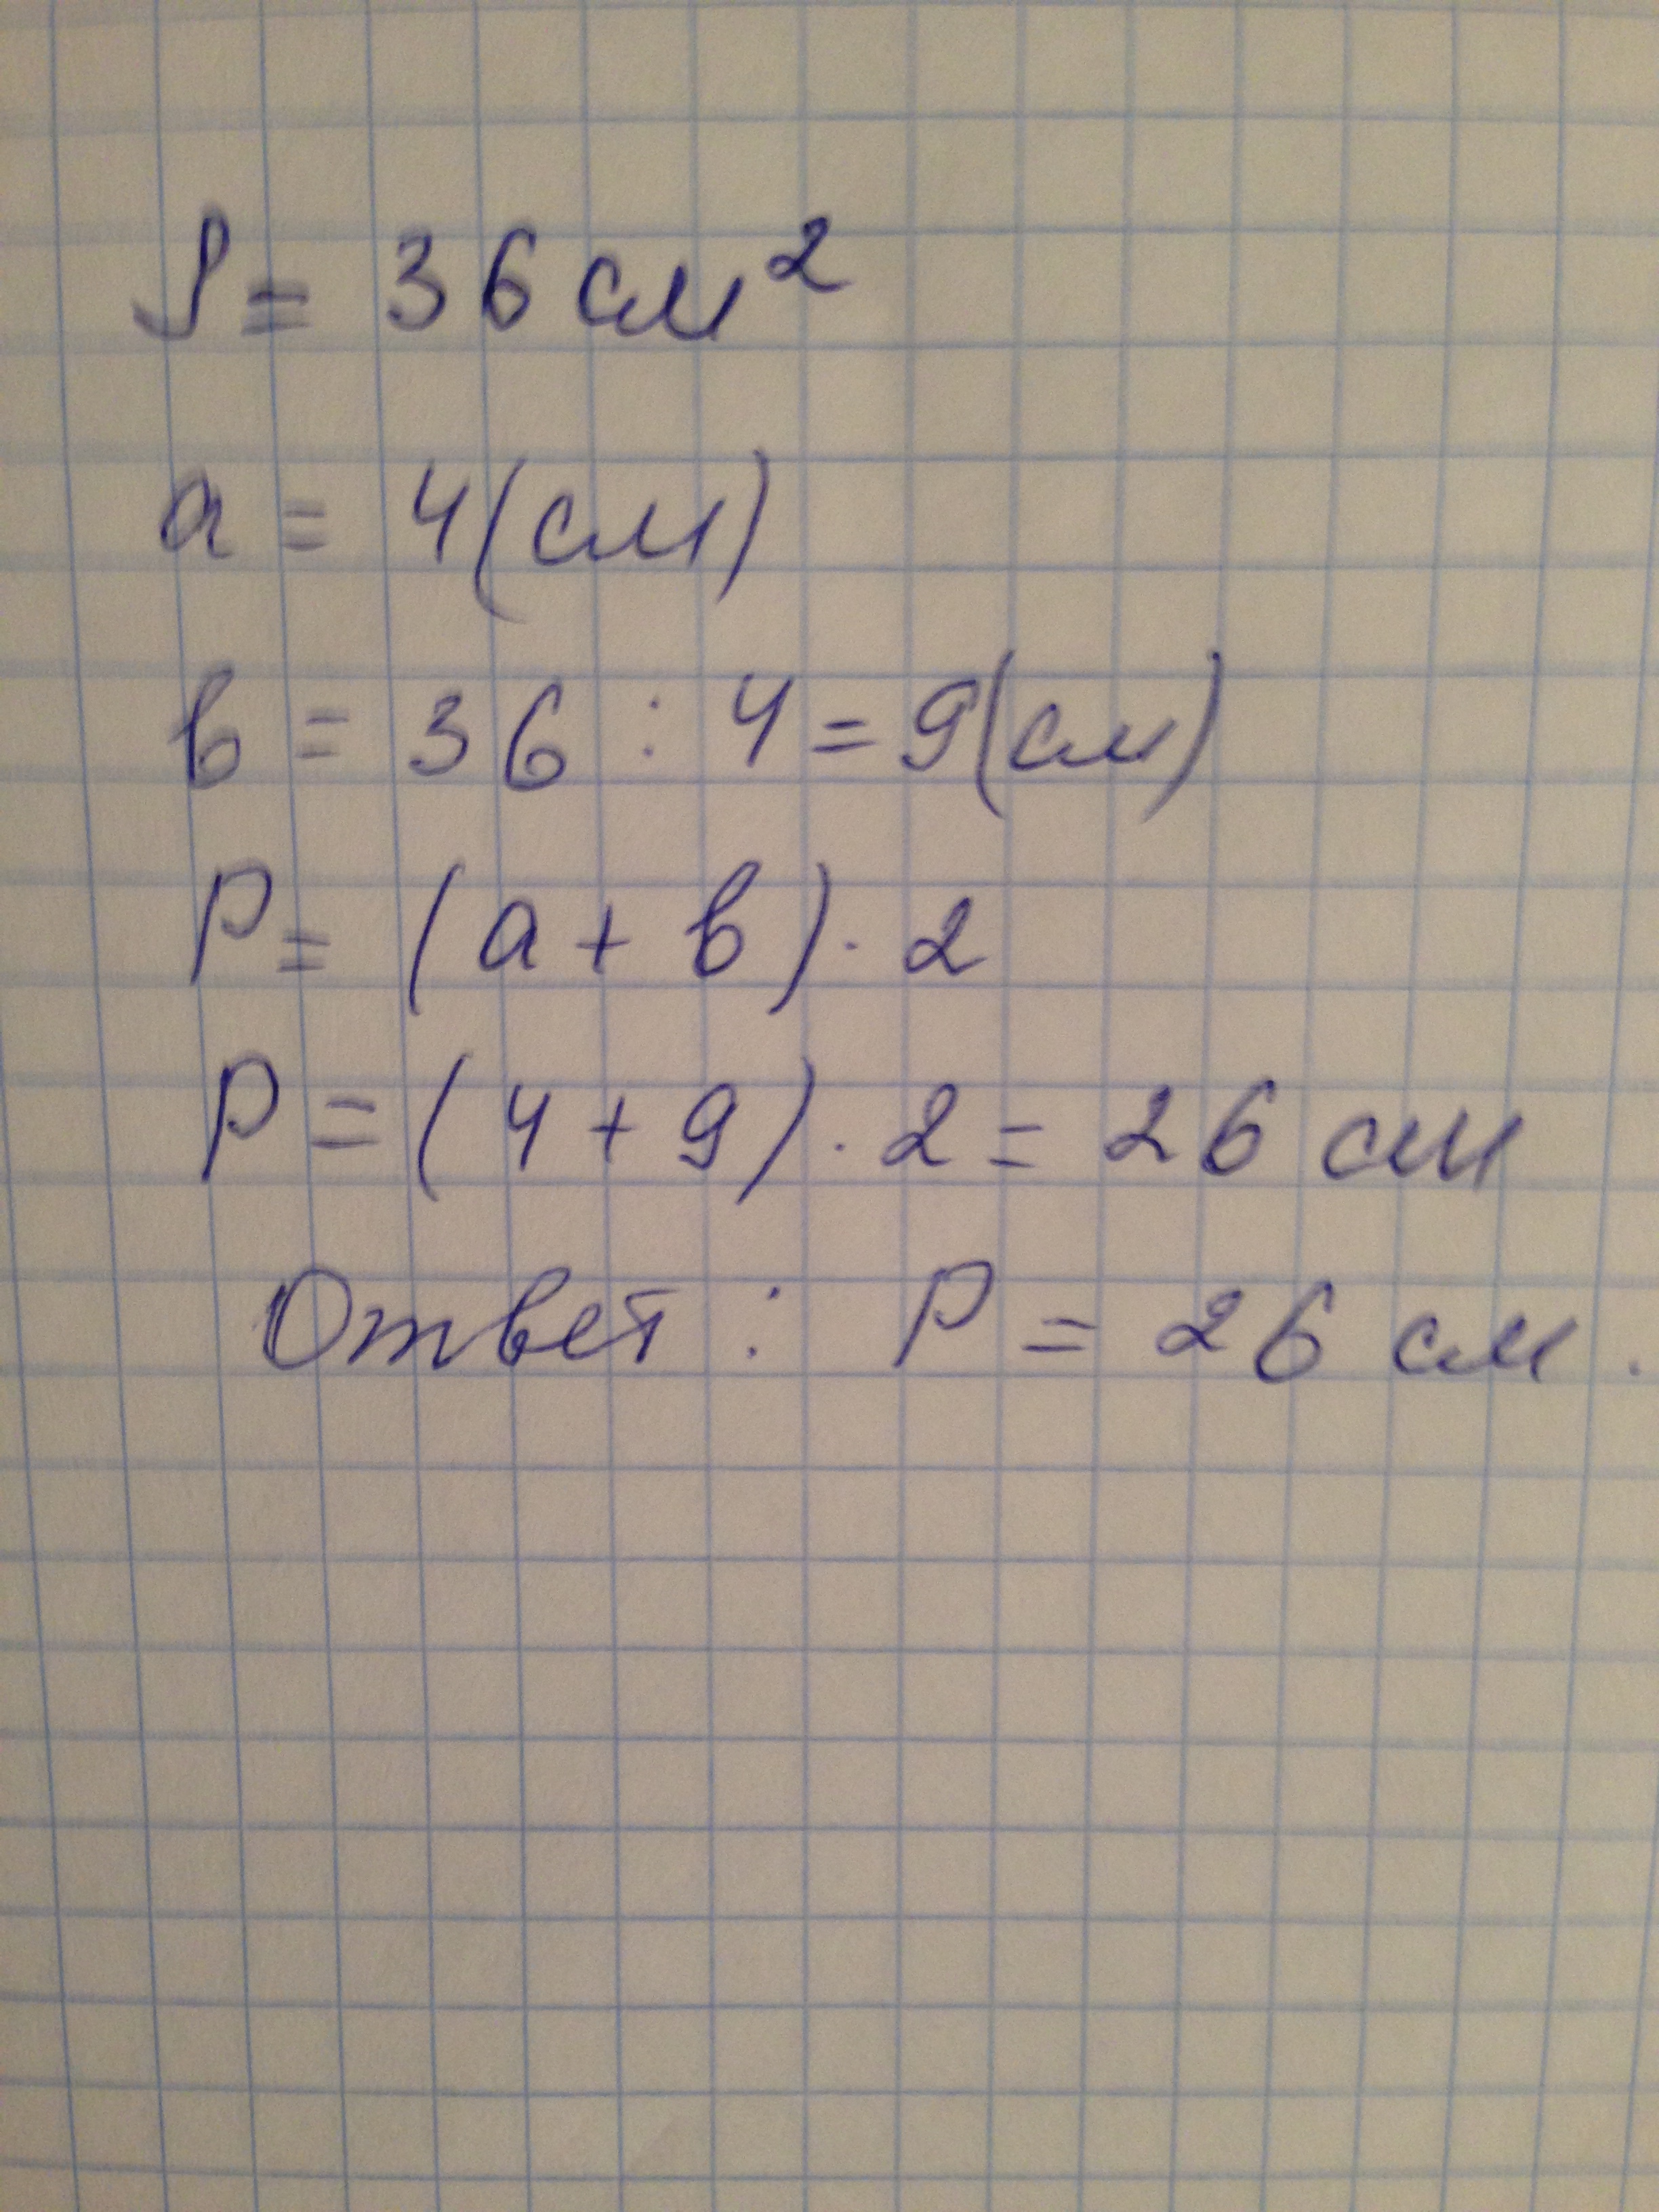 S = 36 см²
а = 4 (см)
в = 36 : 4 = 9 (см)
Р = (а + в) · 2
Р = (4 + 9) · 2 = 26 см
Ответ : Р = 26 см .